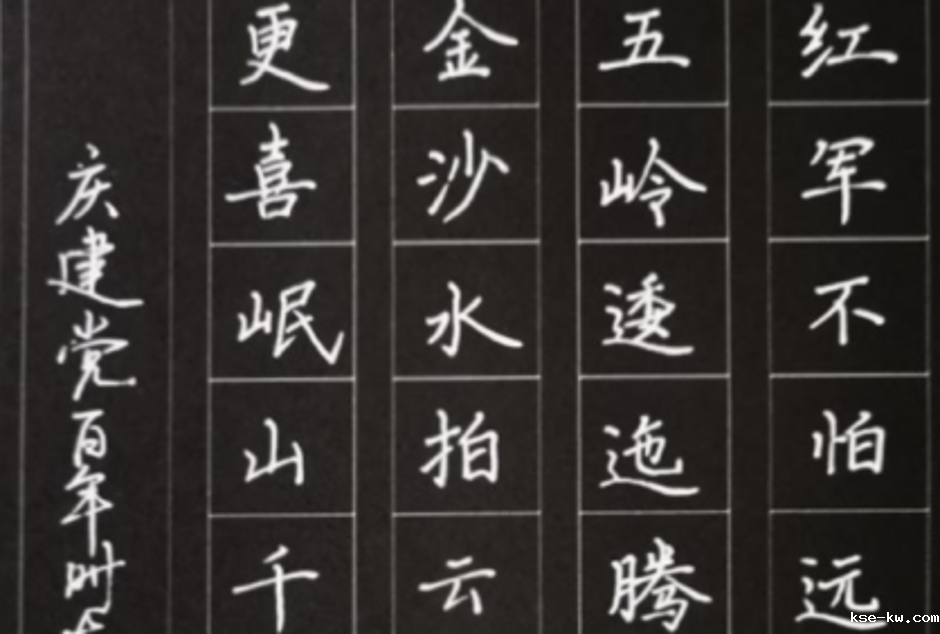 红军不怕远
五岭逶迤腾
金沙水拍云
更喜岷山千
庆建党百年时
kse-kw.com